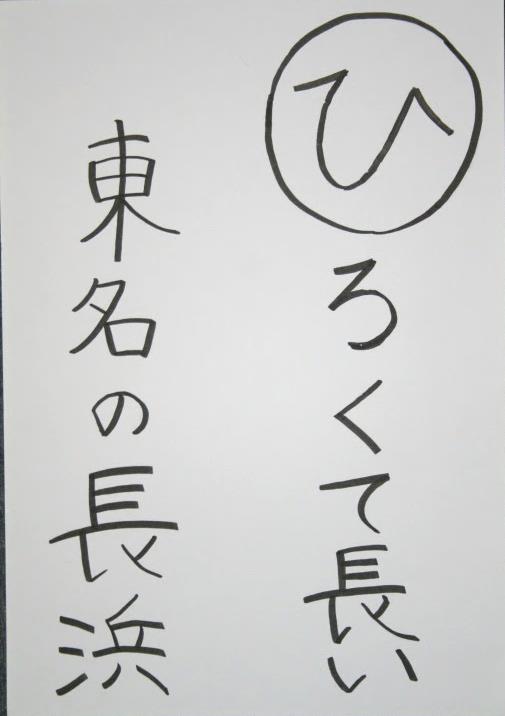 ひろくて長い
東名の長浜